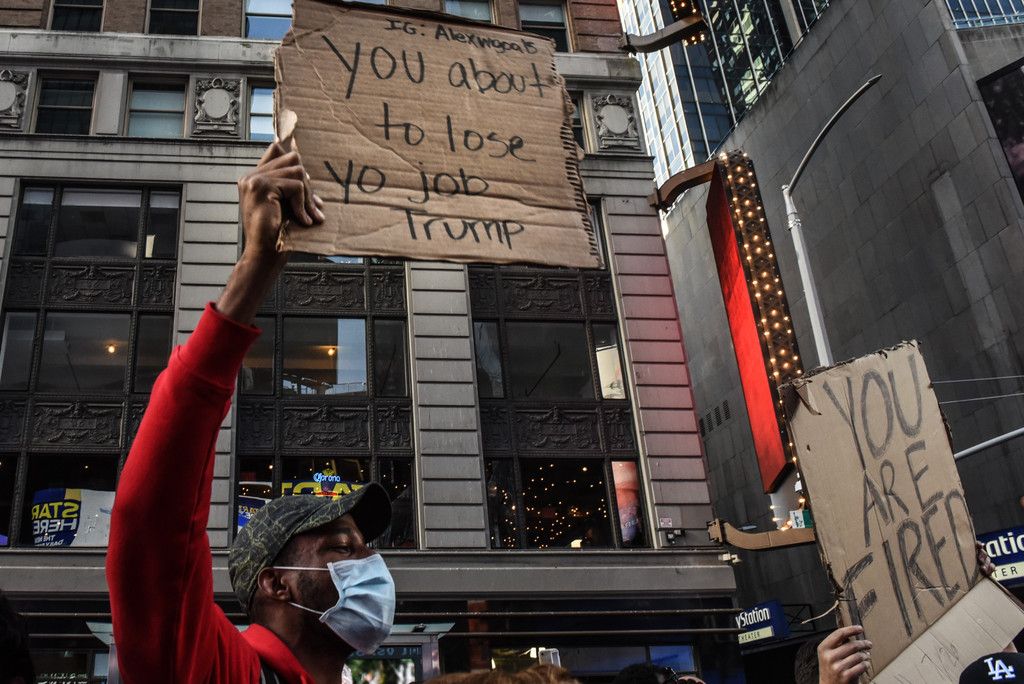 IG: Alexmgoa15
You about
to lose
yo job
Trump
YOU
ARE
FIRED
Corona
START
HERE
yStation
THEATER
LA